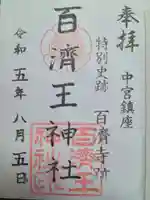 奉拝
中宮鎮座
特別史跡
百済寺跡
百濟王神社
令和五年八月五日
百済王
神社